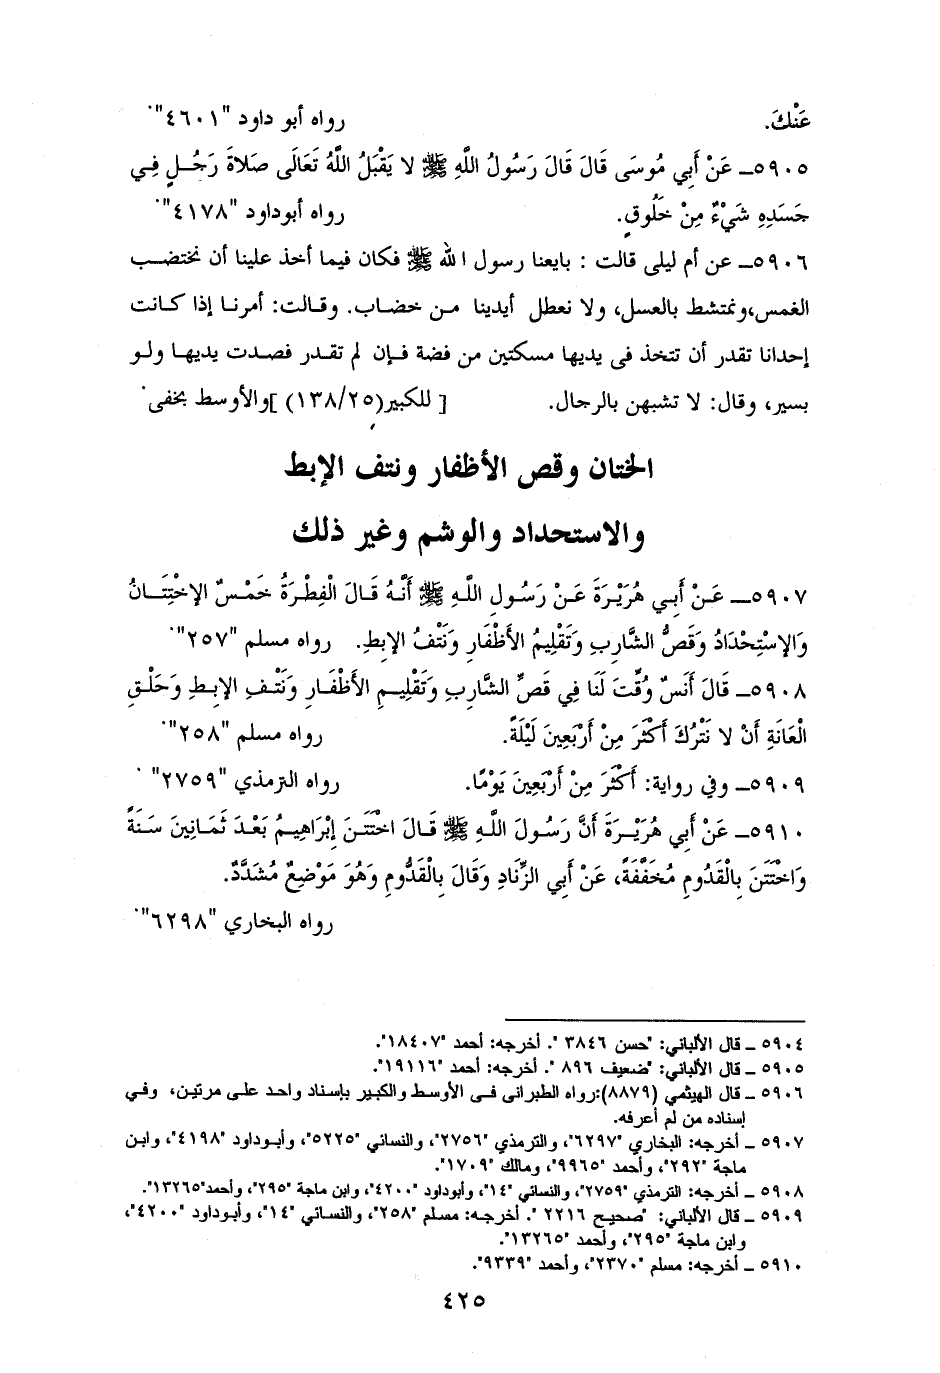 عَنْكَ. رواه أبو داود "٤٦٠١".
٥٩٠٥ـ عَنْ أَبِي مُوسَى قَالَ قَالَ رَسُولُ اللَّهِ ﷺ لا يَقْبَلُ اللَّهُ تَعَالَى صَلاةَ رَجُلٍ فِي
جَسَدِهِ شَيْءٌ مِنْ خَلُوقٍ. رواه أبوداود "٤١٧٨".
٥٩٠٦ـ عن أم ليلى قالت : بايعنا رسول الله ﷺ فكان فيما أخذ علينا أن نختضب
الغمس،ونمتشط بالعسل، ولا نعطل أيدينا من خضاب. وقالت: أمرنا إذا كانت
إحدانا تقدر أن تتخذ فى يديها مسكتين من فضة فإن لم تقدر فصدت يديها ولو
بسير، وقال: لا تشبهن بالرجال. [ للكبير(١٣٨/٢٥) ]والأوسط بخفى.
الختان وقص الأظفار ونتف الإبط
والاستحداد والوشم وغير ذلك
٥٩٠٧ـ عَنْ أَبِي هُرَيْرَةَ عَنْ رَسُولِ اللَّهِ ﷺ أَنَّهُ قَالَ الْفِطْرَةُ خَمْسٌ الاِخْتِتَانُ
وَالاِسْتِحْدَادُ وَقَصُّ الشَّارِبِ وَتَقْلِيمُ الأَظْفَارِ وَنَتْفُ الإِبطِ. رواه مسلم "٢٥٧".
٥٩٠٨ـ قَالَ أَنَسٌ وُقِّتَ لَنَا فِي قَصِّ الشَّارِبِ وَتَقْلِيمِ الأَظْفَارِ وَنَتْفِ الإِبطِ وَحَلْقِ
الْعَانَةِ أَنْ لا نَتْرُكَ أَكْثَرَ مِنْ أَرْبَعِينَ لَيْلَةً. رواه مسلم "٢٥٨".
٥٩٠٩ـ وفي رواية: أَكْثَرَ مِنْ أَرْبَعِينَ يَوْمًا. رواه الترمذي "٢٧٥٩" .
٥٩١٠ـ عَنْ أَبِي هُرَيْرَةَ أَنَّ رَسُولَ اللَّهِ ﷺ قَالَ اخْتَتَنَ إِبْرَاهِيمُ بَعْدَ ثَمَانِينَ سَنَةً
وَاخْتَتَنَ بِالْقَدُومِ مُخَفَّفَةً، عَنْ أَبِي الزِّنَادِ وَقَالَ بِالْقَدُّومِ وَهُوَ مَوْضِعٌ مُشَدَّدٌ.
رواه البخاري "٦٢٩٨".
٥٩٠٤ ـ قال الألباني: "حسن ٣٨٤٦ ". أخرجه: أحمد "١٨٤٠٧".
٥٩٠٥ ـ قال الألباني: "ضعيف ٨٩٦ ". أخرجه: أحمد "١٩١١٦".
٥٩٠٦ ـ قال الهيثمي (٨٨٧٩):رواه الطبرانى فى الأوسط والكبير بإسناد واحد على مرتين، وفي
إسناده من لم أعرفه.
٥٩٠٧ ـ أخرجه: البخاري "٦٢٩٧"، والترمذي "٢٧٥٦"، والنسائي "٥٢٢٥"، وأبوداود "٤١٩٨"، وابن
ماجة "٢٩٢"، وأحمد "٩٩٦٥"، ومالك "١٧٠٩".
٥٩٠٨ ـ أخرجه: الترمذي "٢٧٥٩"، والنسائي "١٤"، وأبوداود "٤٢٠٠"، وابن ماجة "٢٩٥"، وأحمد"١٣٢٦٥".
٥٩٠٩ ـ قال الألباني: "صحيح ٢٢١٦ ". أخرجه: مسلم "٢٥٨"، والنسائي "١٤"، وأبوداود "٤٢٠٠"،
وابن ماجة "٢٩٥"، وأحمد "١٣٢٦٥".
٥٩١٠ ـ أخرجه: مسلم "٢٣٧٠"، وأحمد "٩٣٣٩".
٤٢٥